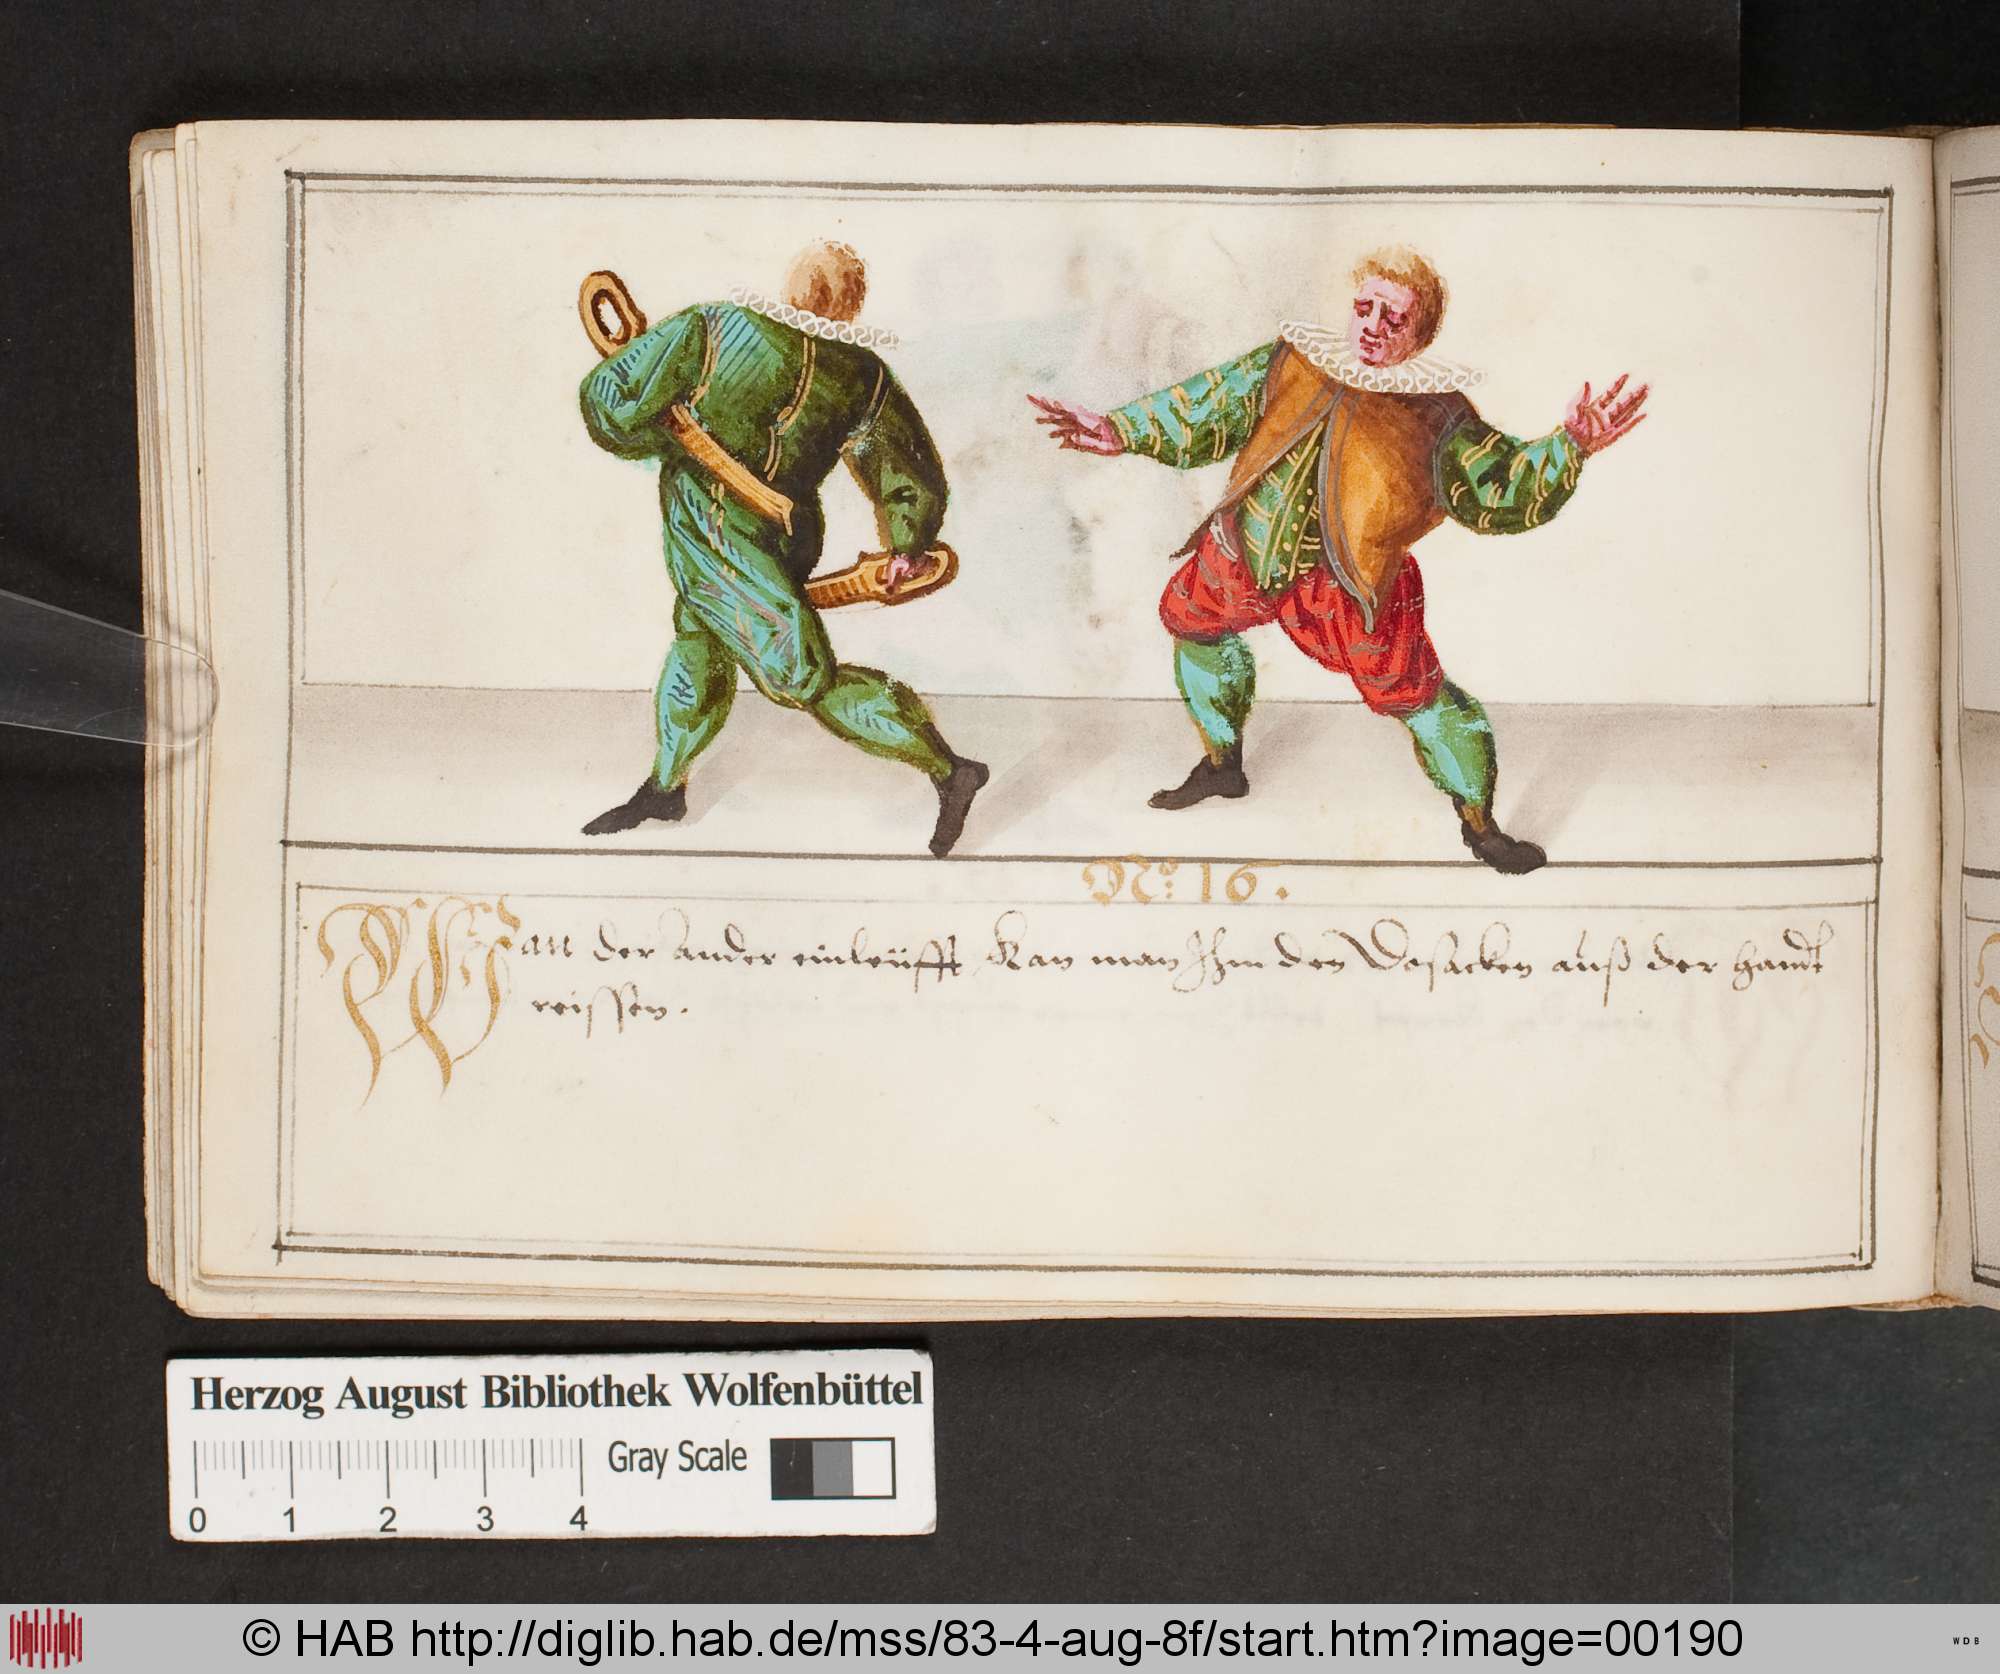 No: 16.
Wan der ander einleüfft Kan man Ihm den Dosacken auß der handt
reissen.
Herzog August Bibliothek Wolfenbüttel
Gray Scale
0 1 2 3 4
© HAB http://diglib.hab.de/mss/83-4-aug-8f/start.htm?image=00190
WDB